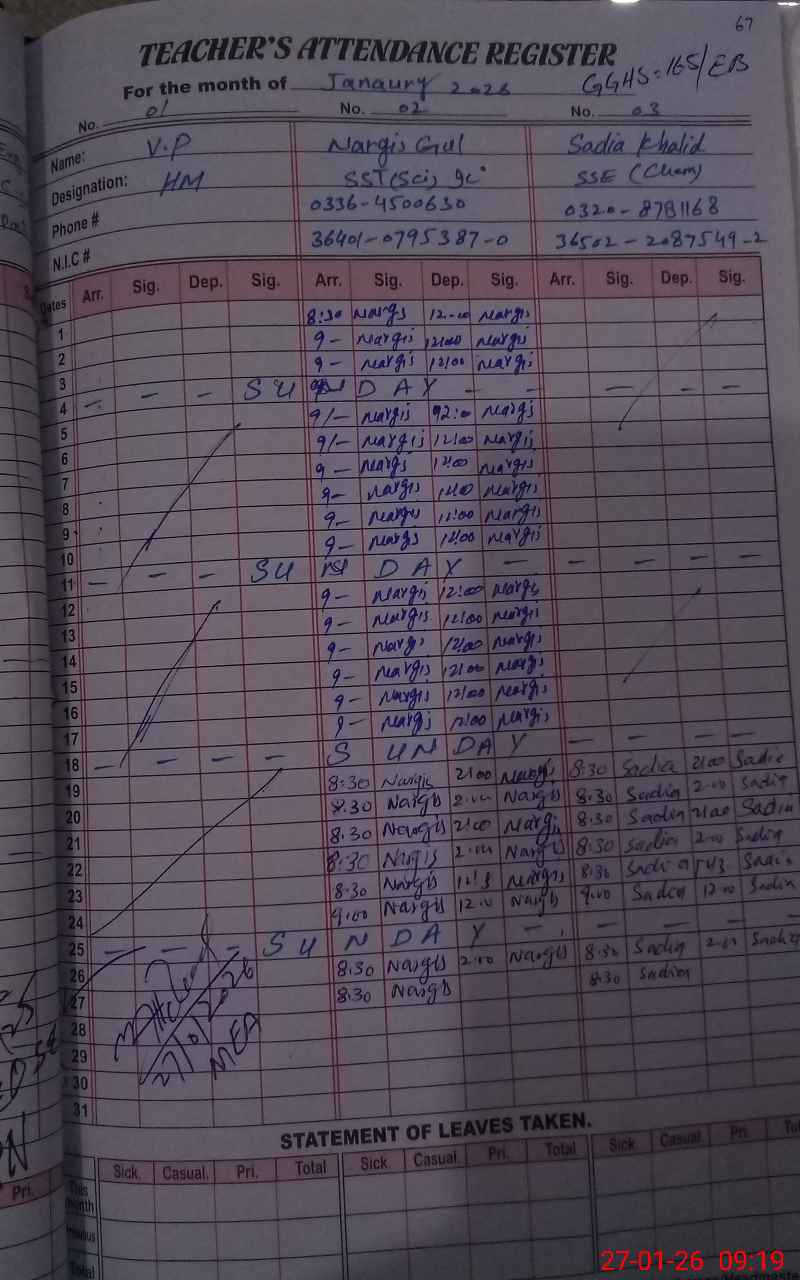 67
TEACHER'S ATTENDANCE REGISTER
For the month of Janaury 2026 GGHS=165/EB
No. 01 No. 02 No. 03
Name: V.P Nargis Gul Sadia Khalid
Designation: HM SST(Sci) SSE (Chem)
Phone # 0336-4500630 0320-8781168
N.I.C # 36401-0795387-0 36502-2087549-2
Dates Arr. Sig. Dep. Sig. Arr. Sig. Dep. Sig. Arr. Sig. Dep. Sig.
1 8:30 Nargis 12:00 Nargis
2 9- Nargis 12:00 Nargis
3 9- Nargis 12:00 Nargis
4 - - - SUNDAY - - - - - -
5 9/- Nargis 12:00 Nargis
6 9/- Nargis 12:00 Nargis
7 9- Nargis 12:00 Nargis
8 9- Nargis 12:00 Nargis
9 9- Nargis 12:00 Nargis
10 9- Nargis 12:00 Nargis
11 - - - SUNDAY - - - - -
12 9- Nargis 12:00 Nargis
13 9- Nargis 12:00 Nargis
14 9- Nargis 12:00 Nargis
15 9- Nargis 12:00 Nargis
16 9- Nargis 12:00 Nargis
17 9- Nargis 12:00 Nargis
18 - - - - SUNDAY - - - -
19 8:30 Nargis 2:00 Nargis 8:30 Sadia 2:00 Sadia
20 8:30 Nargis 2:00 Nargis 8:30 Sadia 2:00 Sadia
21 8:30 Nargis 2:00 Nargis 8:30 Sadia 2:00 Sadia
22 8:30 Nargis 2:00 Nargis 8:30 Sadia 2:00 Sadia
23 8:30 Nargis Nargis 8:30 Sadia Sadia
24 9:00 Nargis 12:00 Nargis 9:00 Sadia 12:00 Sadia
25 - - - SUNDAY - - - - -
26 8:30 Nargis 2:00 Nargis 8:30 Sadia 2:00 Sadia
27 8:30 Nargis 8:30 Sadia
28
29
30
31
27/01/2026
MEA
STATEMENT OF LEAVES TAKEN.
Sick. Casual. Pri. Total Sick. Casual. Pri. Total Sick. Casual. Pri.
This month
Total
Pri.
27-01-26 09:19